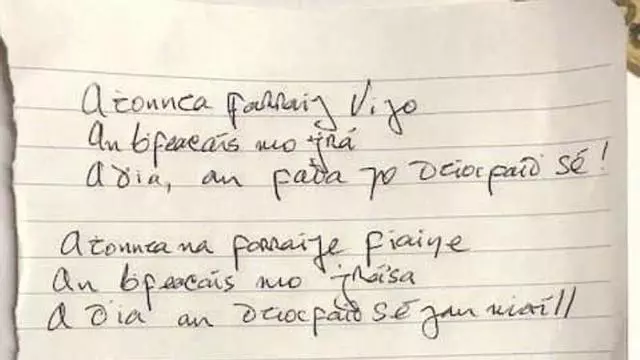 A ṫonnta farraig Vigo
An bfeacais mo ġrá
A Ḋia, an fada go dtiocfaiḋ sé!
A ṫonnta na farraige fiaine
An bfeacais mo ġrása
A Ḋia an dtiocfaiḋ sé gan